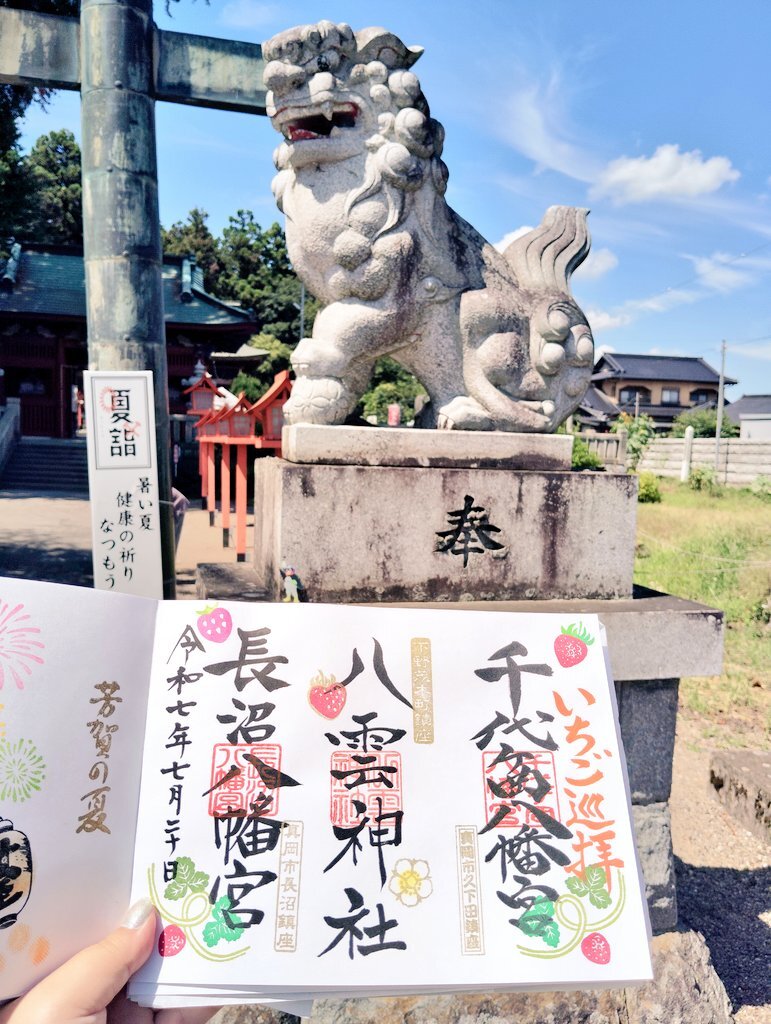 夏詣
暑い夏
健康の祈り
なつもう
奉
いちご巡拝
千代島八幡宮
真岡市久下田鎮座
八雲神社
長沼八幡宮
真岡市長沼鎮座
令和七年七月二十日
芳賀の夏